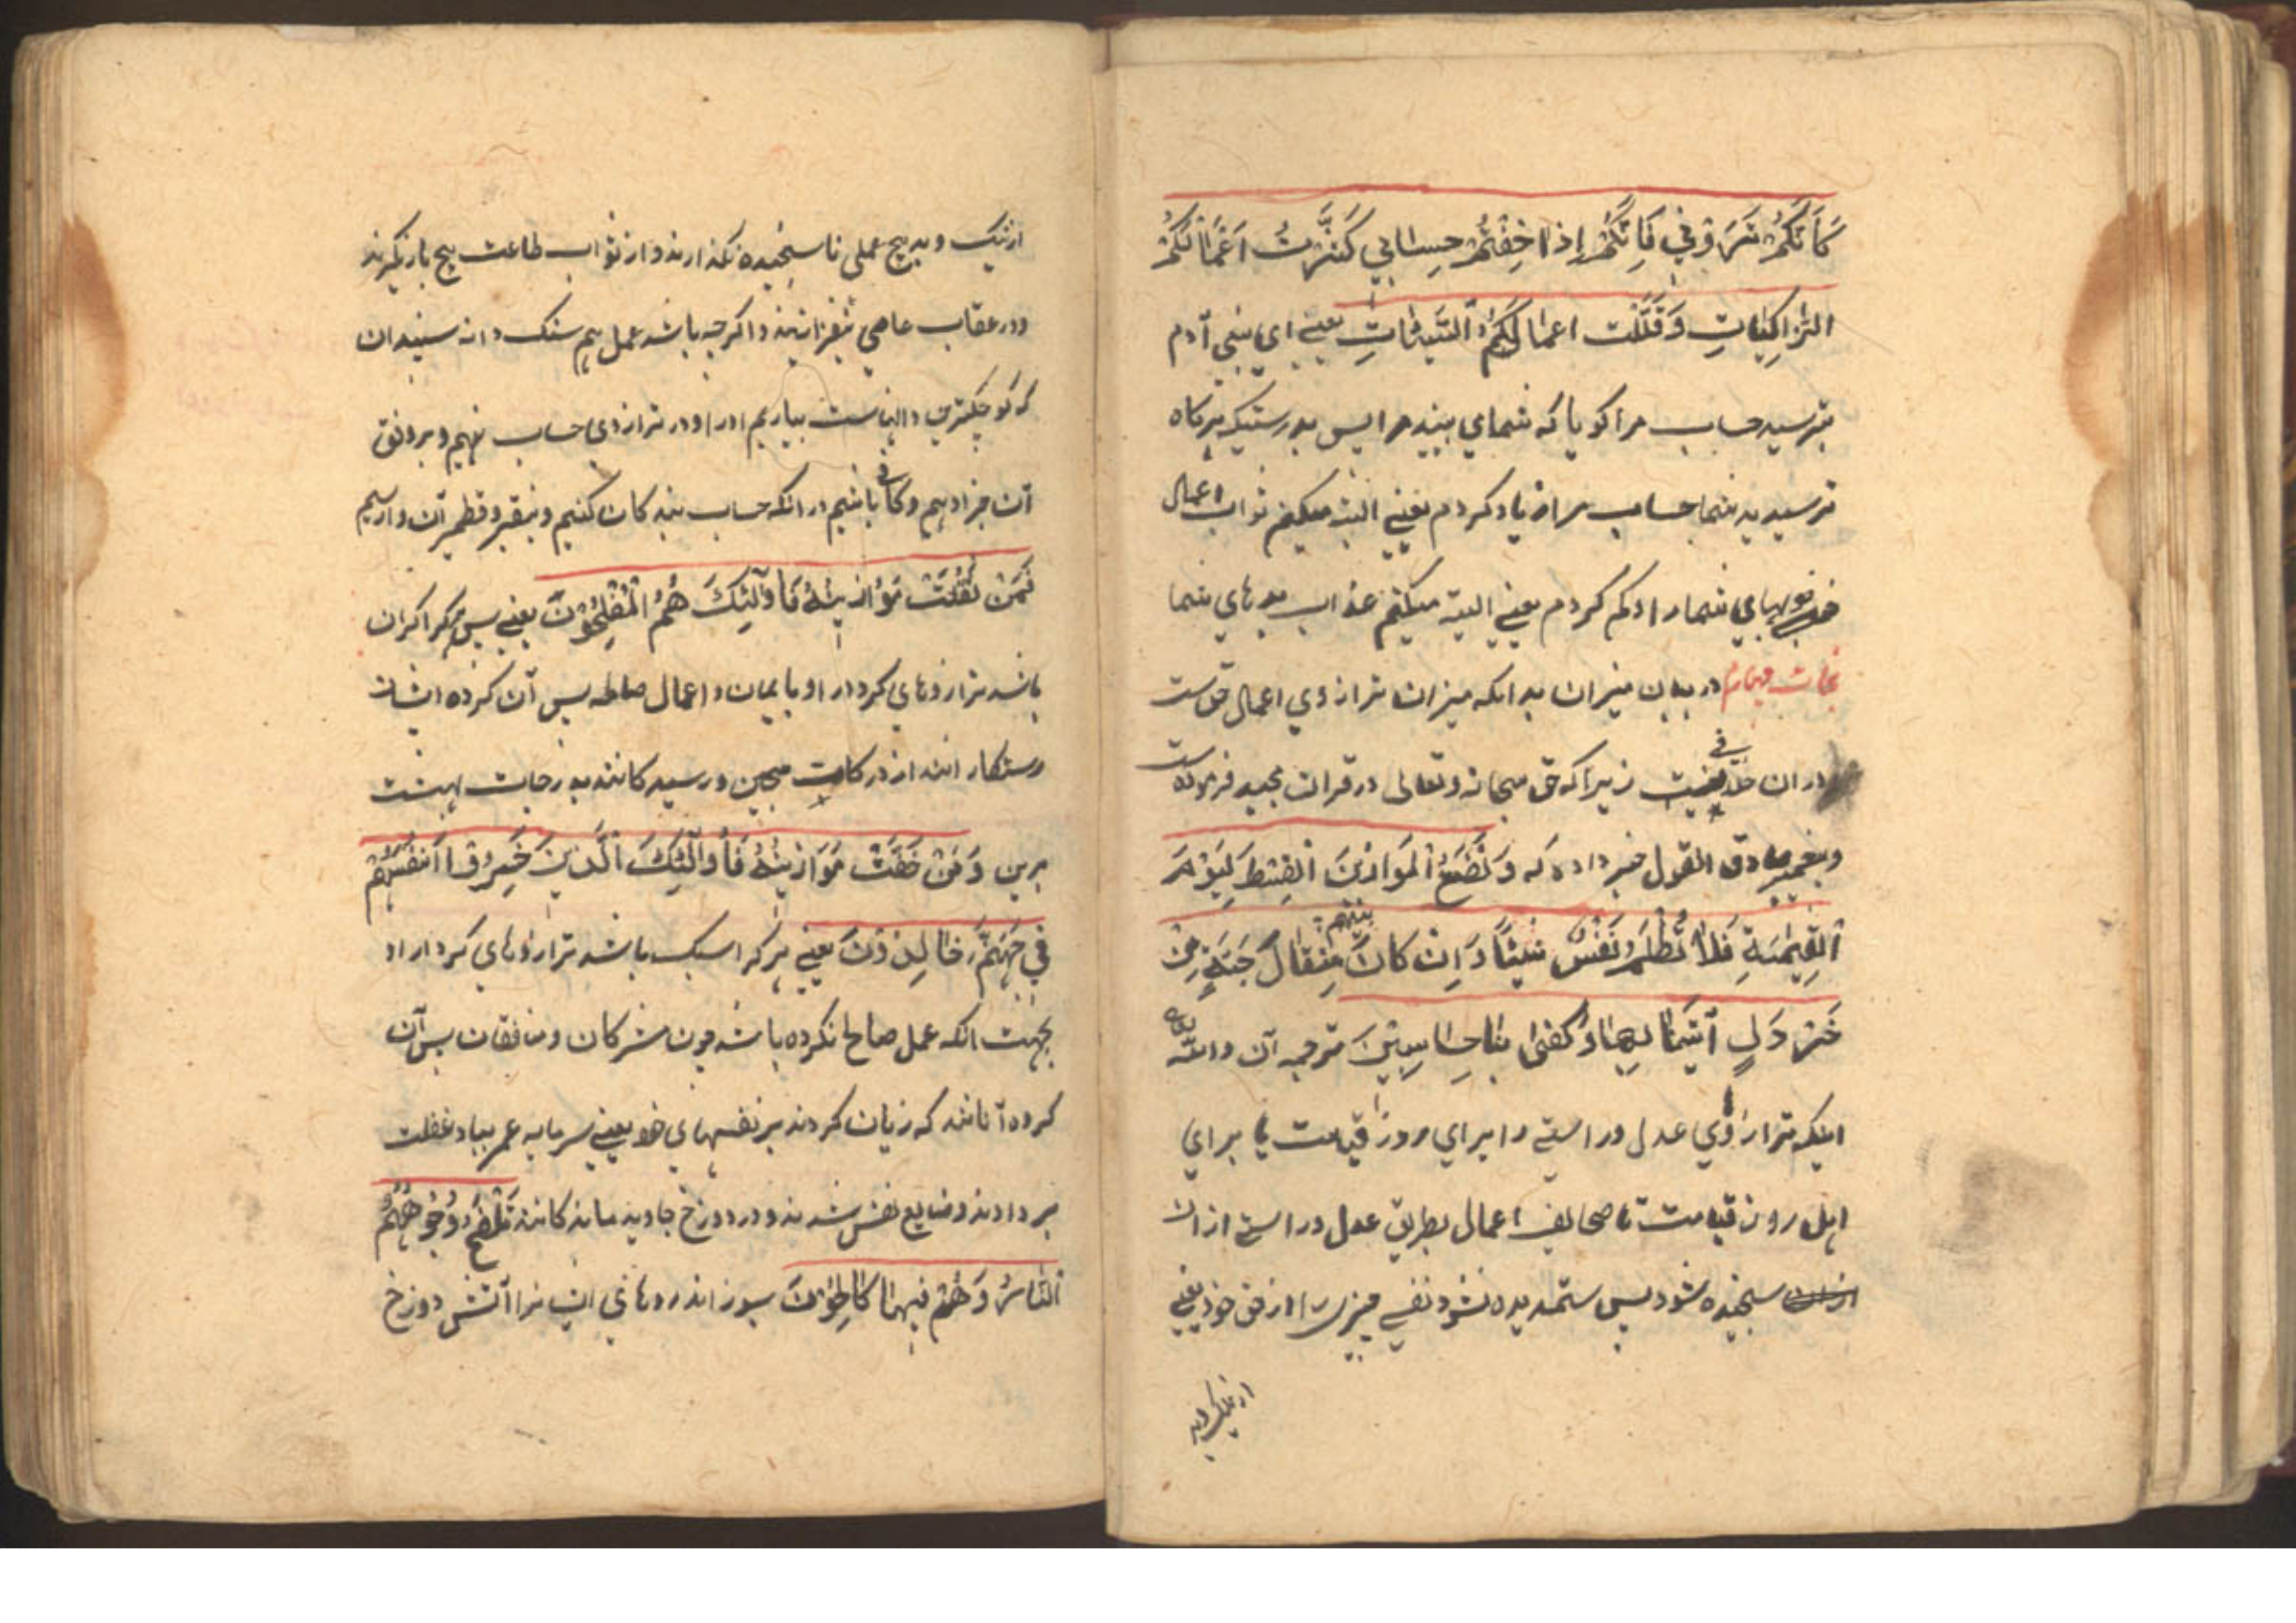 كَأَنَّكُمْ تَرَوْنِي فَإِنَّكُمْ إِذَا خِفْتُمْ حِسَابِي كَثَّرْتُ اَعْمَالَكُمْ
الزَّاكِيَاتِ وَقَلَّلْت اعمالَكُمُ السَّيِّئَاتِ يعنے ای بنی آدم
بترسید حساب مرا کویا که شمای بیند مرا پس بدرستیکه هرکاه
ترسیدید شما حساب مرا زیاد کردم یعنی البته میکنم ثواب اعمال
خوبهای شما را و کم کردم یعنی البته میکنم عذاب بدهای شما
نجات چهارم در بیان میزان بدانکه میزان ترازوی اعمال حق ست
در ان خلافی نیست زیرا که حق سبحانه وتعالی در قران مجید فرموده ست
وپیغمبر صادق القول خبر داده که وَنَضَعُ الْمَوَازِينَ الْقِسْطَ لِيَوْمِ
الْقِيٰمَةِ فَلَا تُظْلَمُ نَفْسٌ شَيْئًا وَاِنْ كَانَ مِثْقَالَ حَبَّةٍ مِنْ
خَرْدَلٍ اَتَيْنَا بِهَا وَكَفٰى بِنَا حَاسِبِينَ ترجمه آن والله
اینکه ترازوی عدل وراستے را برای روز قیامت یا برای
اهل روز قیامت تا صحایف اعمال بطریق عدل وراستے ازان
سنجیده شود پس ستمدیده نشود نفسے چیزی را از حق خود یعنی
از نیک وبد
از نیک و بد هیچ عملی نا سنجیده نکذارند و از ثواب طاعت هیچ باز نکیرند
ودر عقاب عاصی نیفزایند واکرچه باشد عمل هم سنک دانه سپندان
که کوچکترین دانهاست بیاریم اورا و در ترازوی حساب نهیم و بر وفق
آن جزا دهیم وکافی باشیم در انکه حساب بندکان کنیم وبنقیر وقطمیر آن وارسیم
فَمَنْ ثَقُلَتْ مَوَازِينُهُ فَأُولٰئِكَ هُمُ الْمُفْلِحُونَ یعنے پس هرکرا کران
باشد ترازوهای کردار او بایمان و اعمال صالحه پس آن کروه ایشان
رستکار انند از درکات سجین ورسیدکانند بدرجات بهشت
برین وَمَنْ خَفَّتْ مَوَازِينُهُ فَأُولٰئِكَ الَّذِينَ خَسِرُوا اَنْفُسَهُمْ
فِي جَهَنَّمَ خَالِدُونَ یعنے هرکه را سبک باشد ترازوهای کردار او
بجهت انکه عمل صالح نکرده باشد چون مشرکان ومنافقان پس آن
کروه آنانند که زیان کردند بر نفسهای خود یعنے سرمایه عمر بباد غفلت
بر دادند وضایع نفس شدند و در دوزخ جاوید مانندکانند تَلْفَحُ وُجُوهَهُمُ
النَّارُ وَهُمْ فِيهَا كَالِحُونَ بسوزاند روهای ایشانرا آتش دوزخ